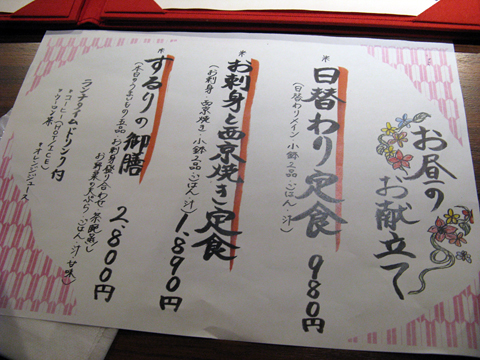 お昼の
お献立て
*日替わり定食 980円
(日替わりメイン 小鉢2品 ごはん 汁)
*お刺身と西京焼き定食 1,890円
(お刺身 西京焼き 小鉢2品 ごはん 汁)
*するりの御膳 2,800円
(本日のうまいもの五品 お刺身盛り合わせ 茶碗蒸し
お野菜の天ぷら ごはん 汁 甘味)
ランチタイムドリンク付
*コーヒー(HOT/ICE) *オレンジジュース
*ウーロン茶